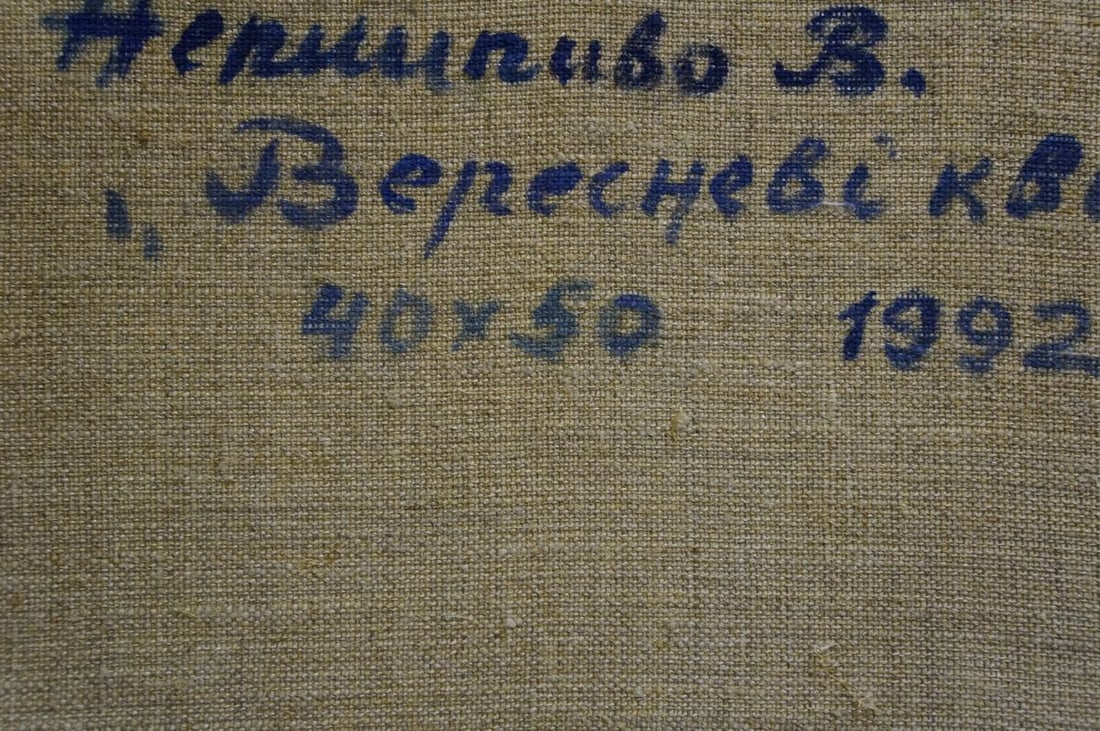 Непийпиво В.
„Вересневі кві
40х50 1992